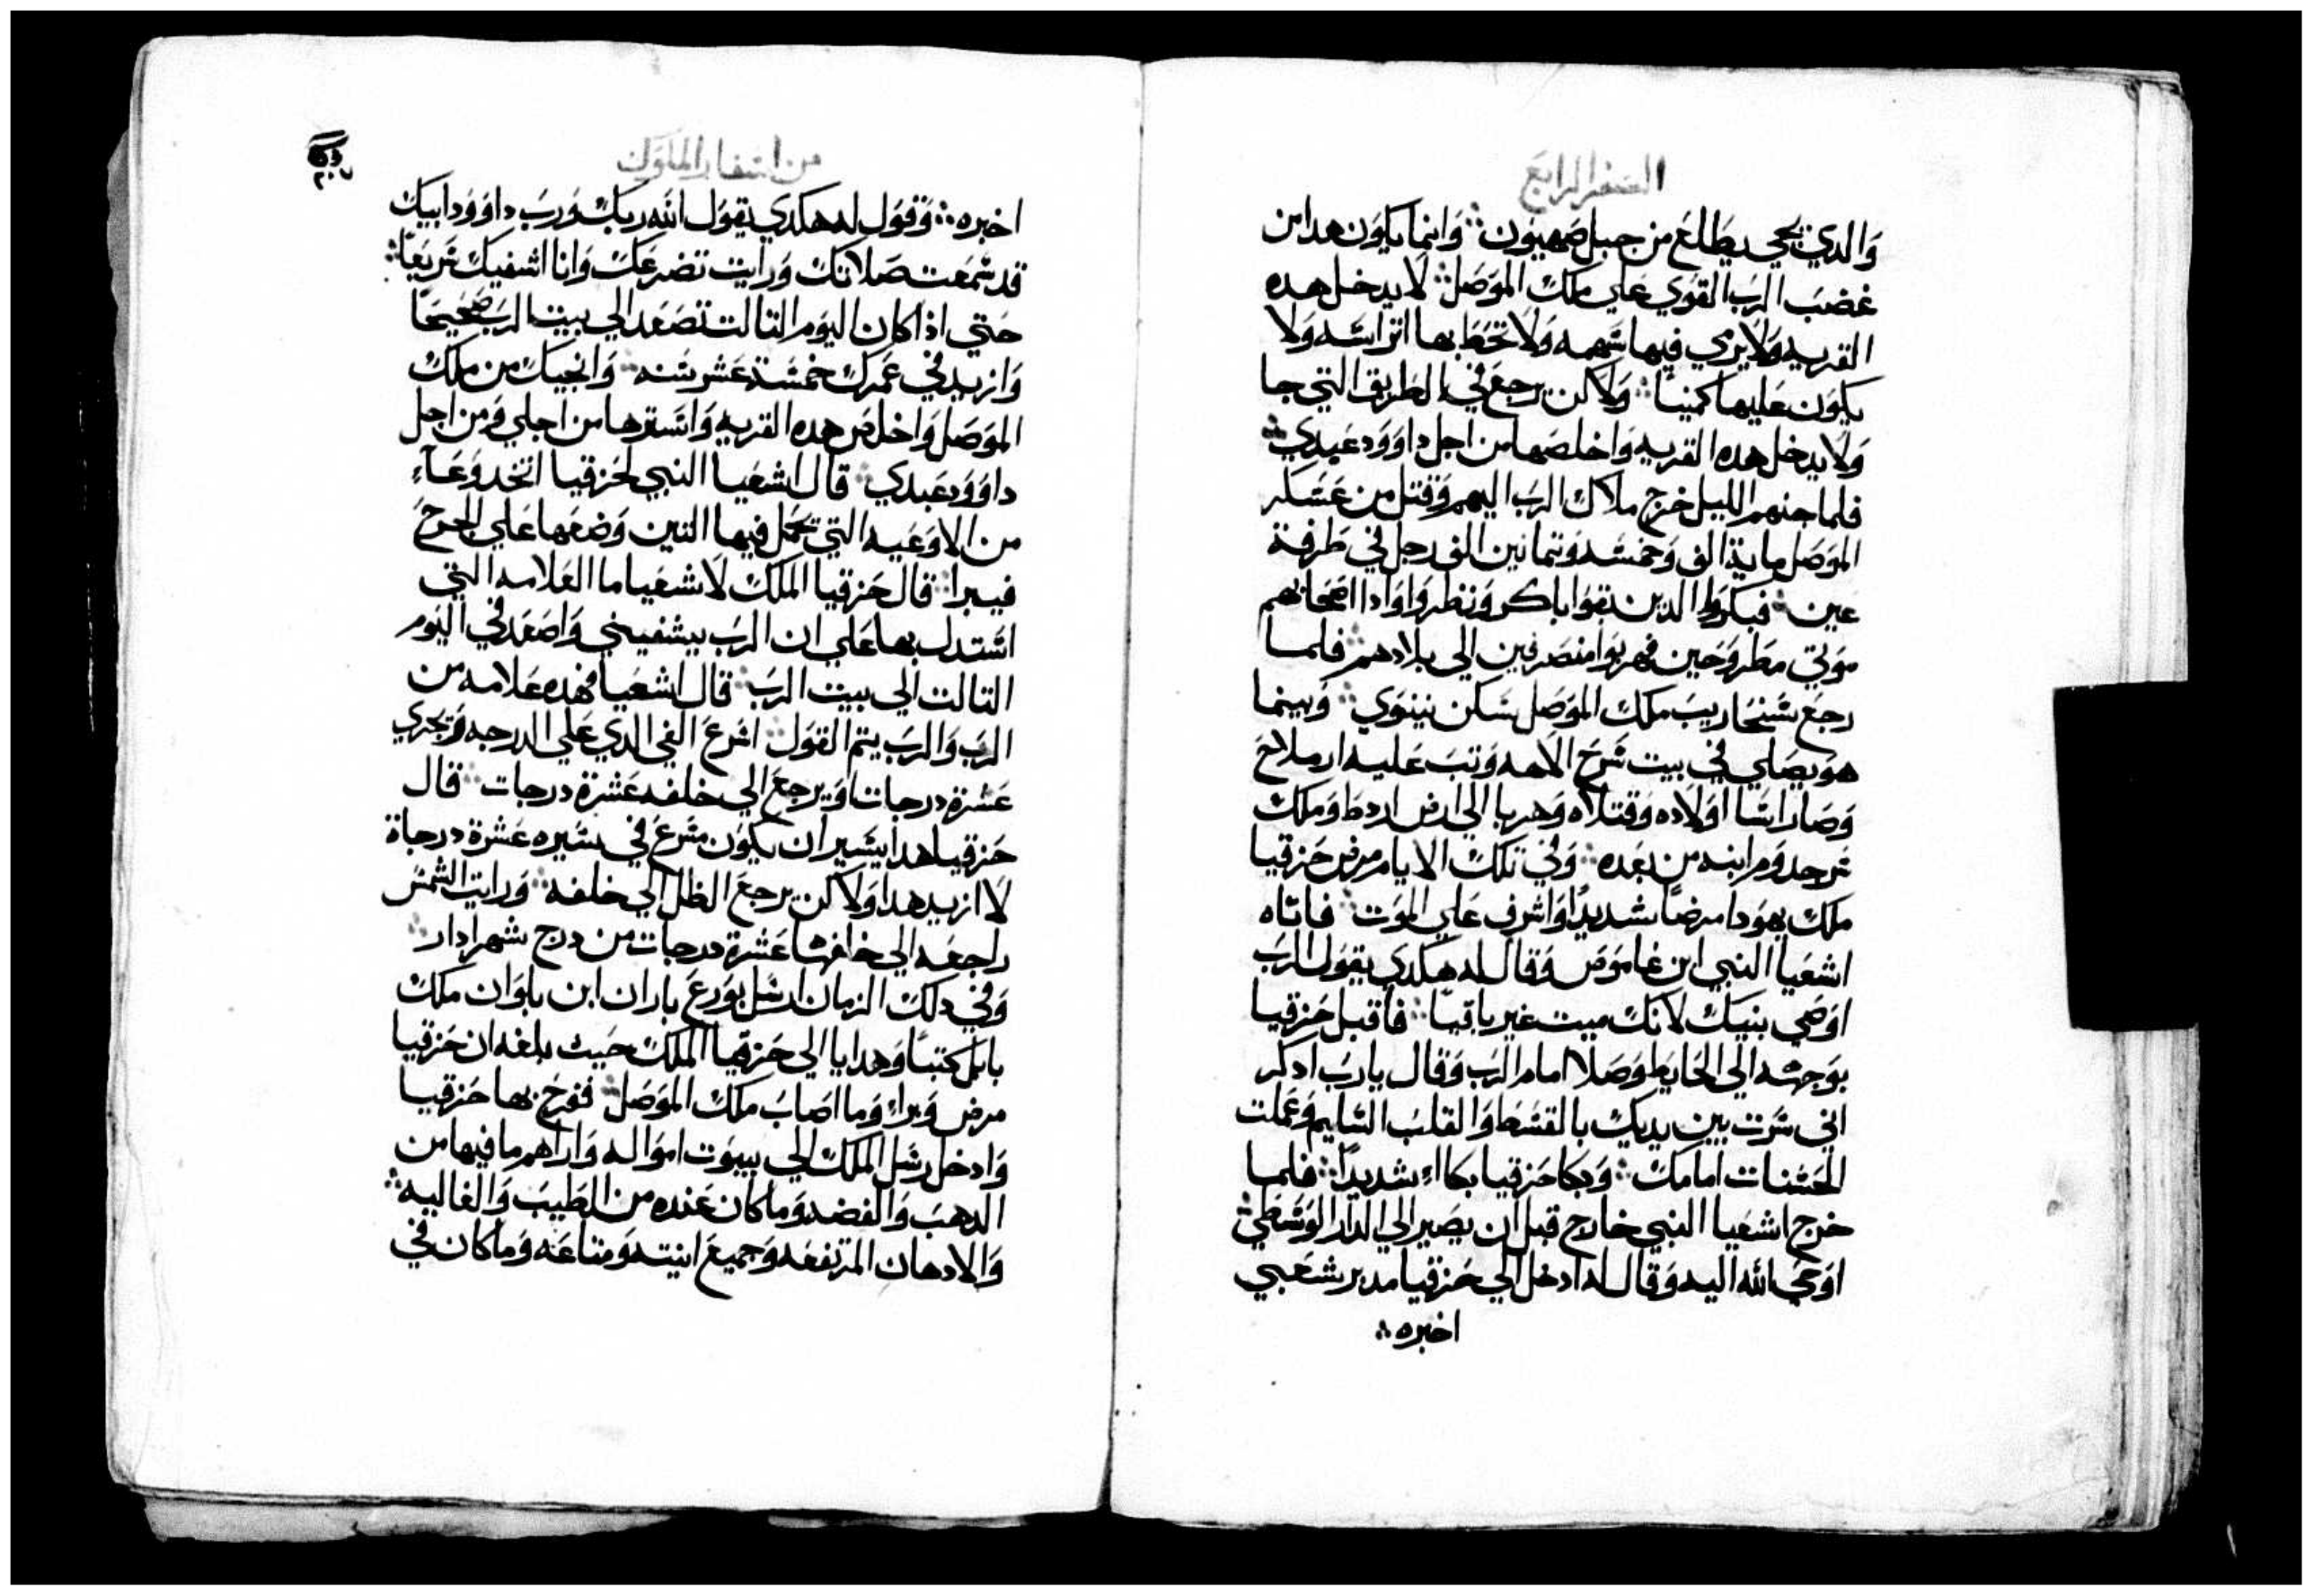 السفر الرابع
والدي يحيى يطلع من جبل صهيون ⁘ وانما يكون هدا من
غضب الرب القوي علي ملك الموصل ⁘ لا يدخل هده
القريه ولا يرمي فيها سهمه ولا تحط بها اتراسه ولا
يكون عليها كمينا ⁘ ولاكن يرجع في الطريق التي جا
ولا يدخل هده القريه واخلصها من اجل داوود عبدي ⁘
فلما جنهم الليل خرج ملاك الرب اليهم وقتل من عسكر
الموصل ماية الف وخمسه وتمانين الف رجل في طرفة
عين ⁘ فبكروا الدين بقوا باكر ونظروا وادا اصحابهم
موتي مطروحين فهربوا منصرفين الي بلادهم ⁘ فلما
رجع سنحاريب ملك الموصل سكن نينوي ⁘ وبينما
هو يصلي في بيت سرح الاهه وتب عليه ارملاح
وصاراسا اولاده وقتلاه وهربا الي ارض اردط وملك
سرحدوم ابنه من بعده ⁘ وفي تلك الايام مرض حزقيا
ملك يهودا مرضا شديدا واشرف علي الموت ⁘ فاتاه
اشعيا النبي ابن عاموص وقال له هكدي يقول الرب
اوصي بنيك لانك ميت غير باقيا ⁘ فاقبل حزقيا
بوجهه الي الحايط وصلا امام الرب وقال يا رب ادكر
اني سرت بين يديك بالقسط والقلب السليم وعملت
الحسنات امامك ⁘ وبكا حزقيا بكااء شديدا ⁘ فلما
خرج اشعيا النبي خارج قبل ان يصير الي الدار الوسطي ⁘
اوحي الله اليه وقال له ادخل الي حزقيا مدبر شعبي
اخبره ⁘
من اسفار الملوك
٢٠٧
اخبره ⁘ وقول له هكدي يقول الله ربك ورب داوود ابيك
قد سمعت صلاتك ورايت تضرعك وانا اشفيك سريعا ⁘
حتي اذا كان اليوم التالت تصعد الي بيت الرب صحيحا
وازيد في عمرك خمسة عشر سنه ⁘ وانجيك من ملك
الموصل واخلص هده القريه واسترها من اجلي ومن اجل
داوود عبدي ⁘ قال اشعيا النبي لحزقيا اتخد وعآء
من الاوعيه التي تحمل فيها التين وضعها علي الجرح
فيبرا ⁘ قال حزقيا الملك لاشعيا ما العلامه التي
استدل بها علي ان الرب يشفيني واصعد في اليوم
التالت الي بيت الرب ⁘ قال اشعيا فهده علامه من
الرب والرب يتم القول ⁘ اسرع الفي الدي علي الدرجه ويجري
عشرة درجات او يرجع الي خلفه عشرة درجات ⁘ قال
حزقيا هدا يسير ان يكون مسرع في سيره عشرة درجاة
لا ازيد هدا ولاكن يرجع الظل الي خلفه ⁘ ورايت الشمس
راجعه الي خلفها عشرة درجات من درج شهر ادار ⁘
وفي دلك الزمان ارسل بورع باران ابن باوان ملك
بابل كتبا وهدايا الي حزقيا الملك حيت بلغه ان حزقيا
مرض وبراء وما اصاب ملك الموصل ⁘ ففرح بها حزقيا
وادخل رسل الملك الي بيوت امواله واراهم ما فيها من
الدهب والفضه وما كان عنده من الطيب والغاليه ⁘
والادهان المرتفعه وجميع انيته ومتاعه وما كان في